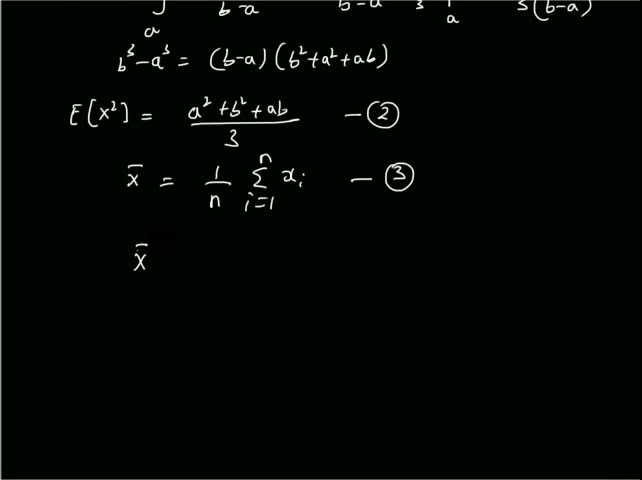 ∫ a b-a b-a 3 a 3(b-a)
b³-a³ = (b-a) (b²+a²+ab)
E[X²] = a²+b²+ab / 3 — ②
x̄ = 1/n Σ i=1 n xᵢ — ③
x̄